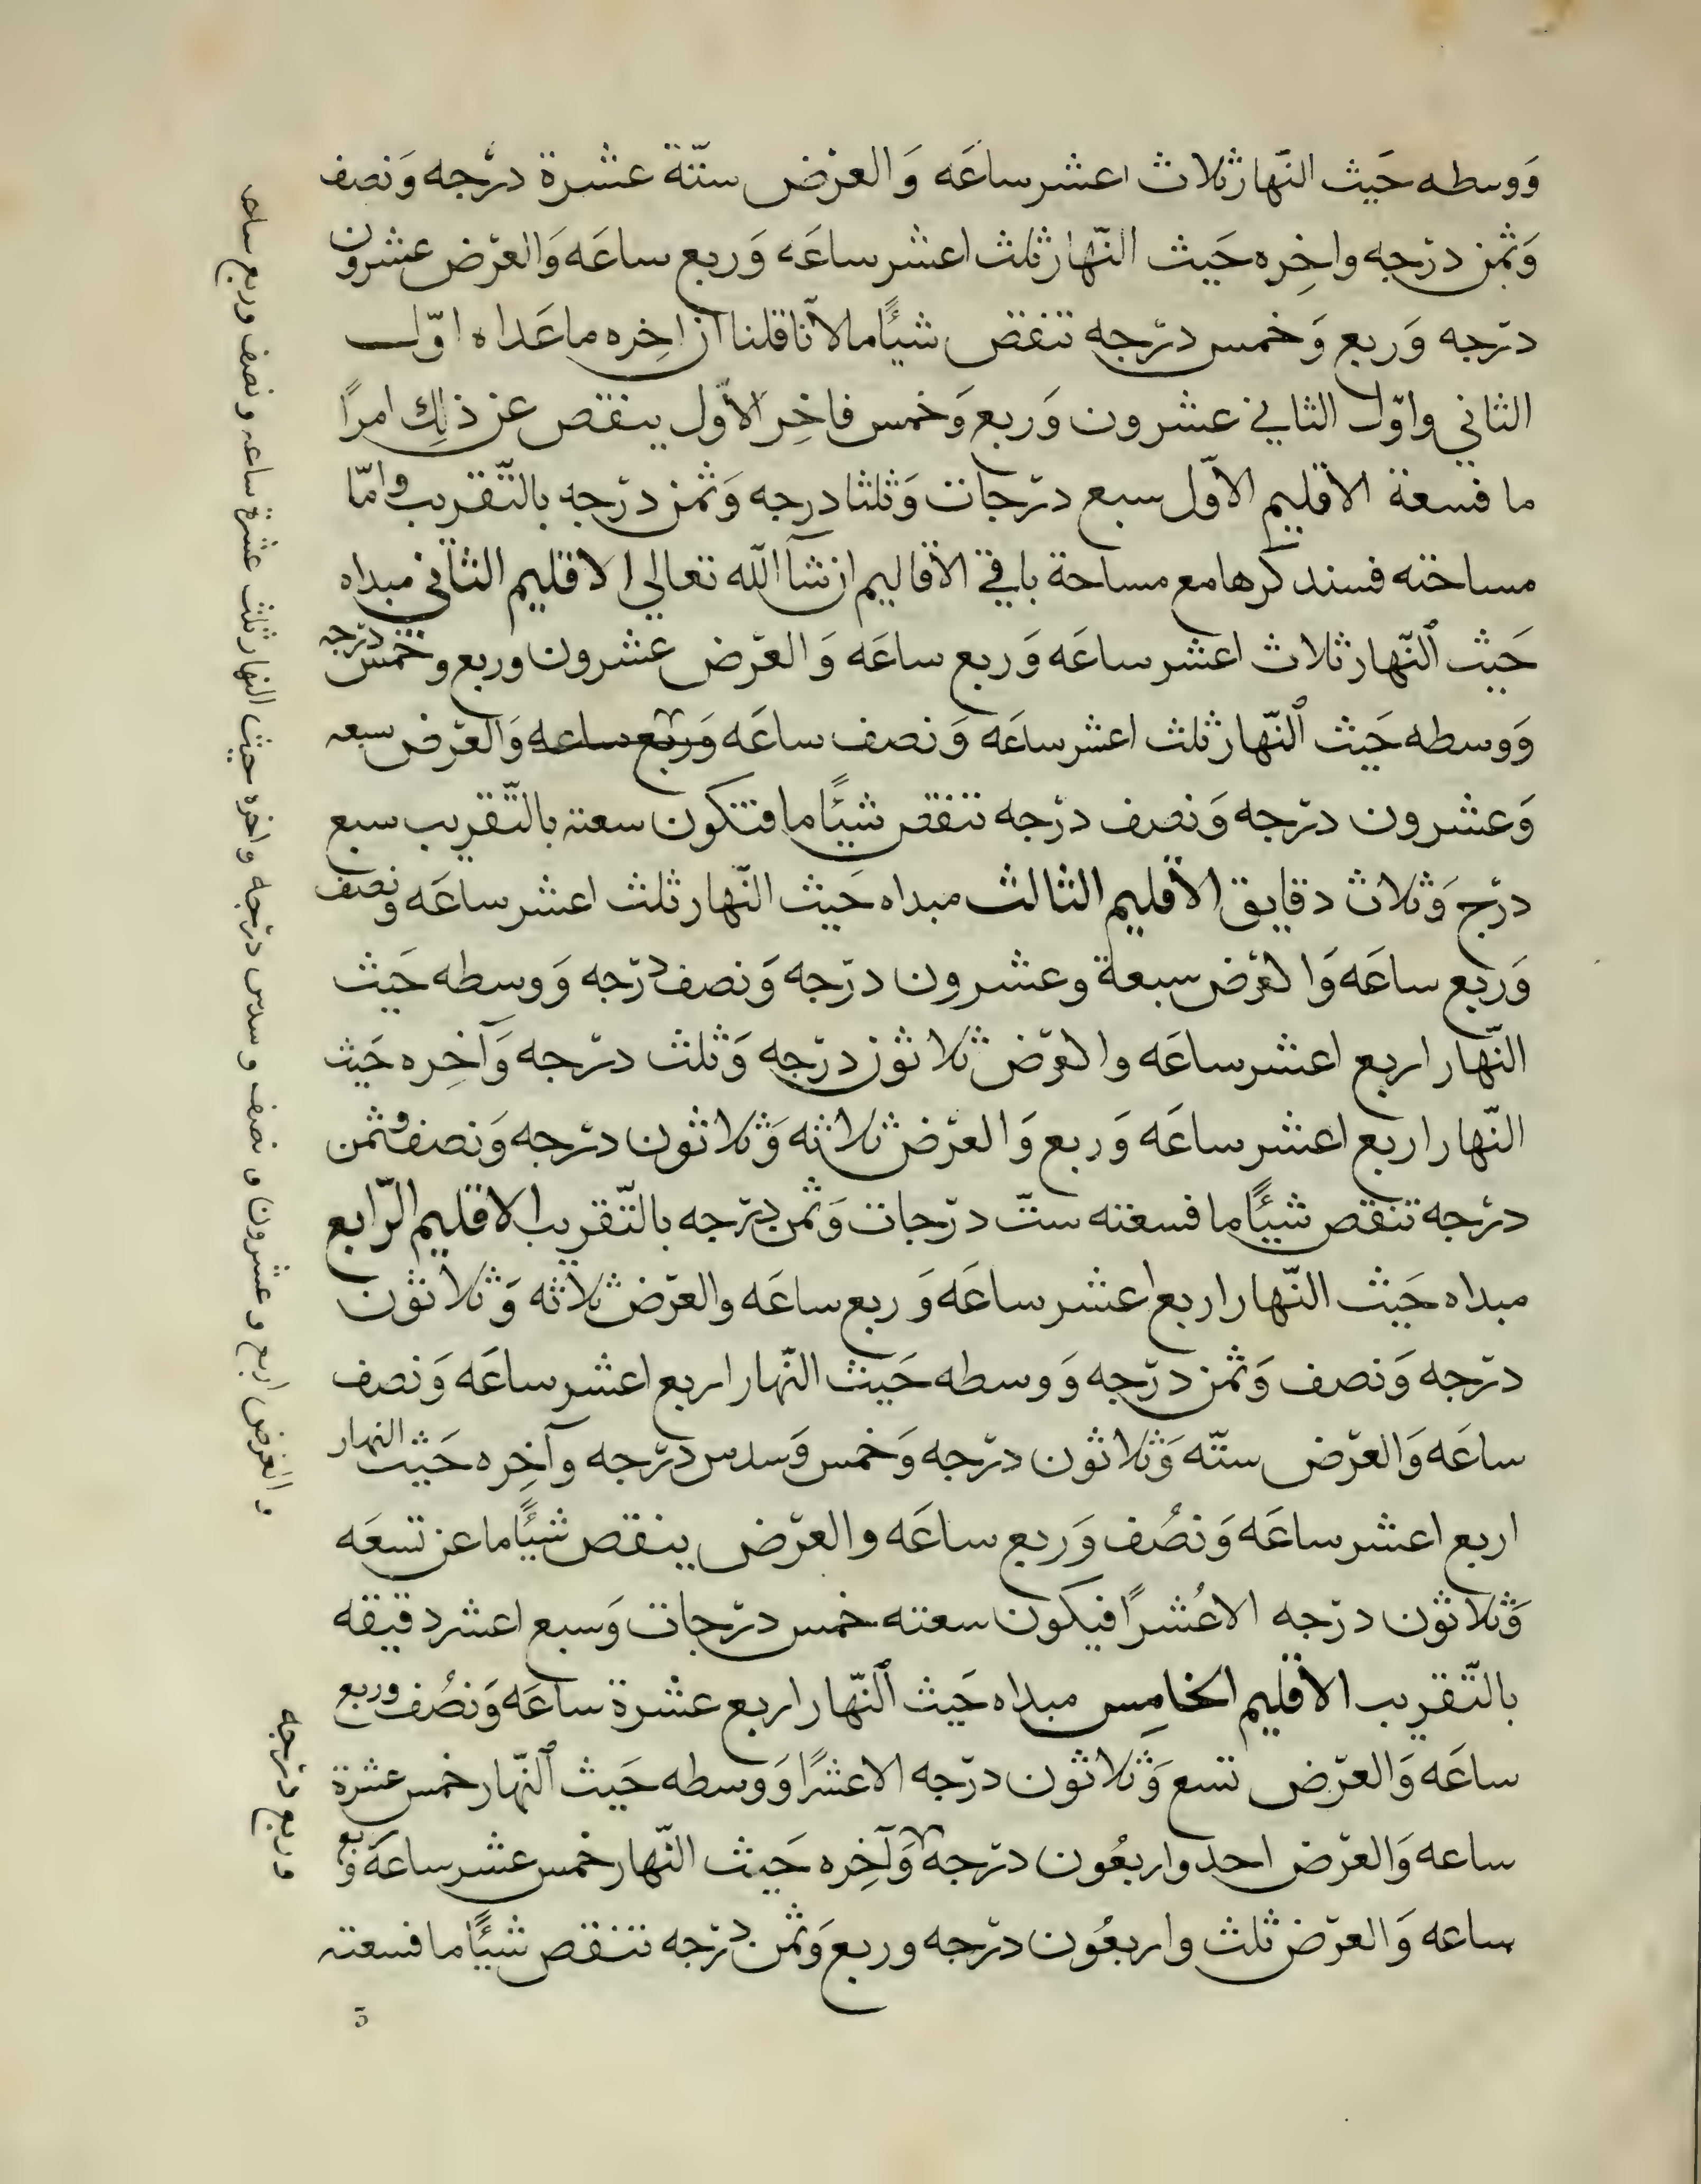 وَوسطه حَيث النّهار ثلاث اعشر ساعَه وَ العرْض ستّة عشرة درّجه وَنصف
وَثمْن درّجه واخِره حَيث النّهار ثلث اعشر ساعَه وَربع ساعَه وَالعرّض عشرون
درّجه وَربع وَخمس درّجه تنقص شيئًا ما لانّا قلنا ان اخِره ما عَداه اوّل
الثاني واوّل الثاني عشرون وَربع وَخمس فاخِر الاوّل ينقص عن ذلِك امرًا
ما فسعة الاقليم الاوّل سبع درّجات وَثلثا درجه وَثمن درّجه بالتّقريب وامّا
مساحته فسنذكرها مع مساحة باقي الاقاليم ان شآ الله تعالي الاقليم الثاني مبداه
حَيث النّهار ثلاث اعشر ساعَه وَربع ساعَه وَ العرّض عشرون وربع وخمس درّجه
وَوسطه حَيث النّهار ثلث اعشر ساعَه وَنصف ساعَه وَربع ساعه وَالعرّض سبعه
وَعشرون درّجه وَنصف درّجه تنقص شيئًا ما فتكون سعته بالتّقريب سبع
درّج وَثلاث دقايق الاقليم الثالث مبداه حَيث النّهار ثلث اعشر ساعَه ونصف
وَربع ساعَه وَالعرّض سبعة وعشرون درّجه وَنصف درّجه وَوسطه حَيث
النّهار اربع اعشر ساعَه والعرّض ثلاثون درّجه وَثلث درّجه وَآخِره حَيث
النّهار اربع اعشر ساعَه وَربع وَالعرّض ثلاثه وَثلاثون درّجه وَنصف وثمن
درّجه تنقص شيئًا ما فسعته ستّ درّجات وَثمن درّجه بالتّقريب الاقليم الرّابع
مبداه حَيث النّهار اربع اعشر ساعَه وَربع ساعَه والعرّض ثلاثه وَثلاثون
درّجه وَنصف وَثمن درّجه وَوسطه حَيث النّهار اربع اعشر ساعَه وَنصف
ساعَه وَالعرّض ستّه وَثلاثون درّجه وَخمس وَسدس درّجه وآخِره حَيث النهار
اربع اعشر ساعَه وَنصُف وَربع ساعَه والعرّض ينقص شيئًا ما عن تسعَه
وَثلاثون درّجه الاعُشرًا فيكون سعته خمس درّجات وَسبع اعشر دقيقه
بالتّقريب الاقليم الخامِس مبداه حَيث النّهار اربع عشرة ساعَه وَنصُف وربع
ساعَه وَالعرّض تسع وَثلاثون درّجه الاعشرًا وَوسطه حَيث النّهار خمس عشرة
ساعه وَالعرّض احد واربعُون درّجه وَآخِره حَيث النّهار خمس عشر ساعَه وَربع
ساعه وَالعرّض ثلث واربعُون درّجه وربع وَثمن درّجه تنقص شيئًا ما فسعته
والعرض اربع وعشرون ونصف وسدس درّجه واخره حيث النهار ثلث عشرة ساعه ونصف وربع ساعه
وربع درّجه
5